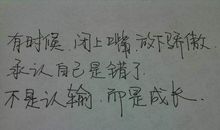 有时候,闭上嘴,放下骄傲,
承认自己是错了.
不是认输,而是成长.